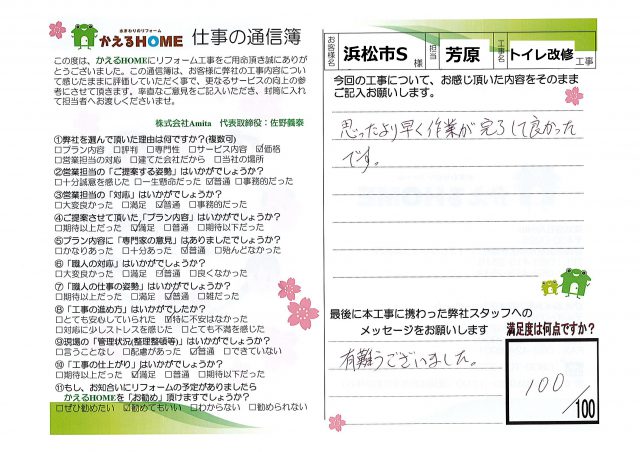 水まわりのリフォーム
かえるHOME 仕事の通信簿
この度は、かえるHOMEにリフォーム工事をご用命頂き誠にありが
とうございました。この通信簿は、お客様に弊社の工事内容につい
て感じたままに評価していただく事で、更なるサービスの向上の参
考にさせて頂きます。率直なご意見をご記入いただき、封筒に入れ
て担当者へお渡しくださいませ。
株式会社Amita 代表取締役：佐野義泰
①弊社を選んで頂いた理由は何ですか?(複数可)
□プラン内容 □評判 □専門性 □サービス内容 ☑価格
□営業担当の対応 □建てた会社だから □当社の場所
②営業担当の「ご提案する姿勢」はいかがでしょうか?
□十分誠意を感じた □一生懸命だった ☑普通 □事務的だった
③営業担当の「対応」はいかがでしょうか?
□大変良かった □満足 ☑普通 □事務的だった
④ご提案させて頂いた「プラン内容」はいかがでしょうか?
□期待以上だった ☑満足 □普通 □期待以下だった
⑤プラン内容に「専門家の意見」はありましたでしょうか?
□かなりあった □十分あった ☑普通 □殆んどなかった
⑥「職人の対応」はいかがでしょうか?
□大変良かった □満足 ☑普通 □良くなかった
⑦「職人の仕事の姿勢」はいかがでしょうか?
□期待以上だった □満足 ☑普通 □雑だった
⑧「工事の進め方」はいかがでしたか?
□とても安心していられた ☑特に不安はなかった
□対応に少しストレスを感じた □とても不満を感じた
⑨現場の「管理状況(整理整頓等)」はいかがでしょうか?
□言うことなし □配慮があった ☑普通 □できていない
⑩「工事の仕上がり」はいかがでしょうか?
□期待以上だった ☑満足 □普通 □期待以下だった
⑪もし、お知合いにリフォームの予定がありましたら
かえるHOMEを「お勧め」頂けますでしょうか?
□ぜひ勧めたい ☑勧めてもいい □わからない □勧められない
お客様名 浜松市S様 担当 芳原 工事名 トイレ改修工事
今回の工事について、お感じ頂いた内容をそのまま
ご記入お願いします。
思ったより早く作業が完了して良かった
です。
最後に本工事に携わった弊社スタッフへの
メッセージをお願いします
有難うございました。
満足度は何点ですか?
100
/100